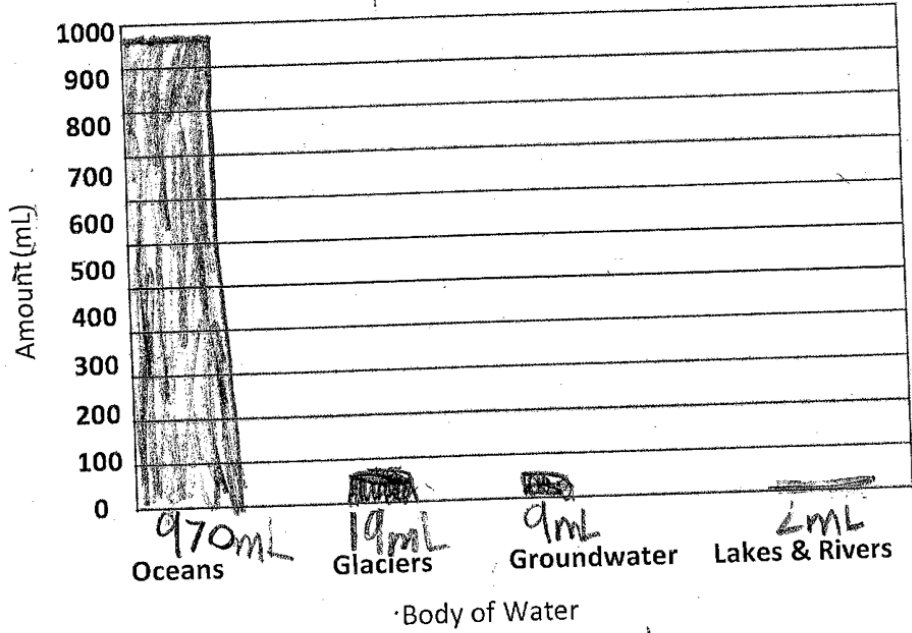 1000
900
800
700
600
500
400
300
200
100
0
Amount (mL)
970mL 19mL 9mL 2mL
Oceans Glaciers Groundwater Lakes & Rivers
Body of Water